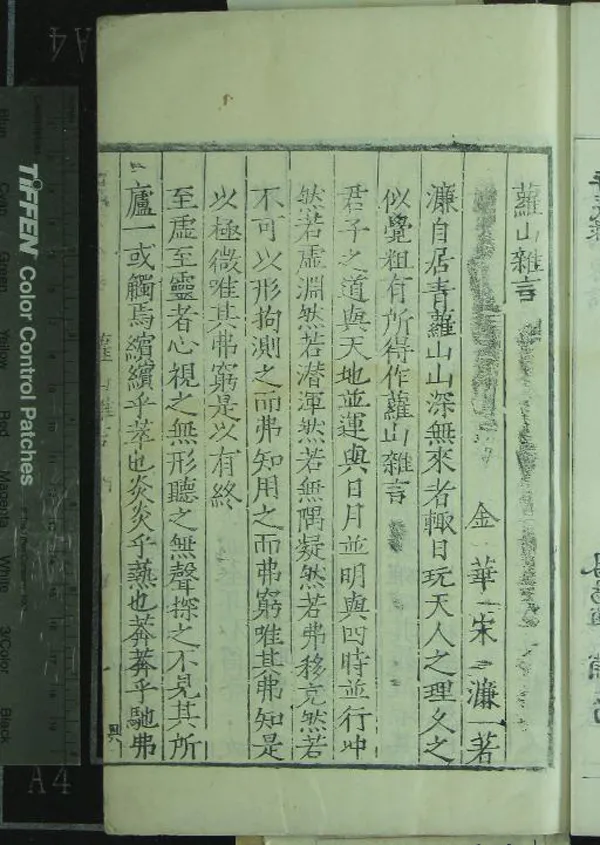 蘿山雜言
金華宋濂著
濂自居青蘿山山深無來者輙日玩天人之理久之
似覺粗有所得作蘿山雜言
君子之道與天地並運與日月並明與四時並行冲
然若虛淵然若潜渾然若無隅凝然若弗移充然若
不可以形拘測之而弗知用之而弗窮唯其弗知是
以極微唯其弗窮是以有終
至虛至靈者心視之無形聽之無聲探之不見其所
廬一或觸焉繽繽乎萃也炎炎乎熱也莽莽乎馳弗
TIFFEN Color Control Patches
Cyan
Green
Yellow
Red
Magenta
White
3/Color
Black
A4
A4